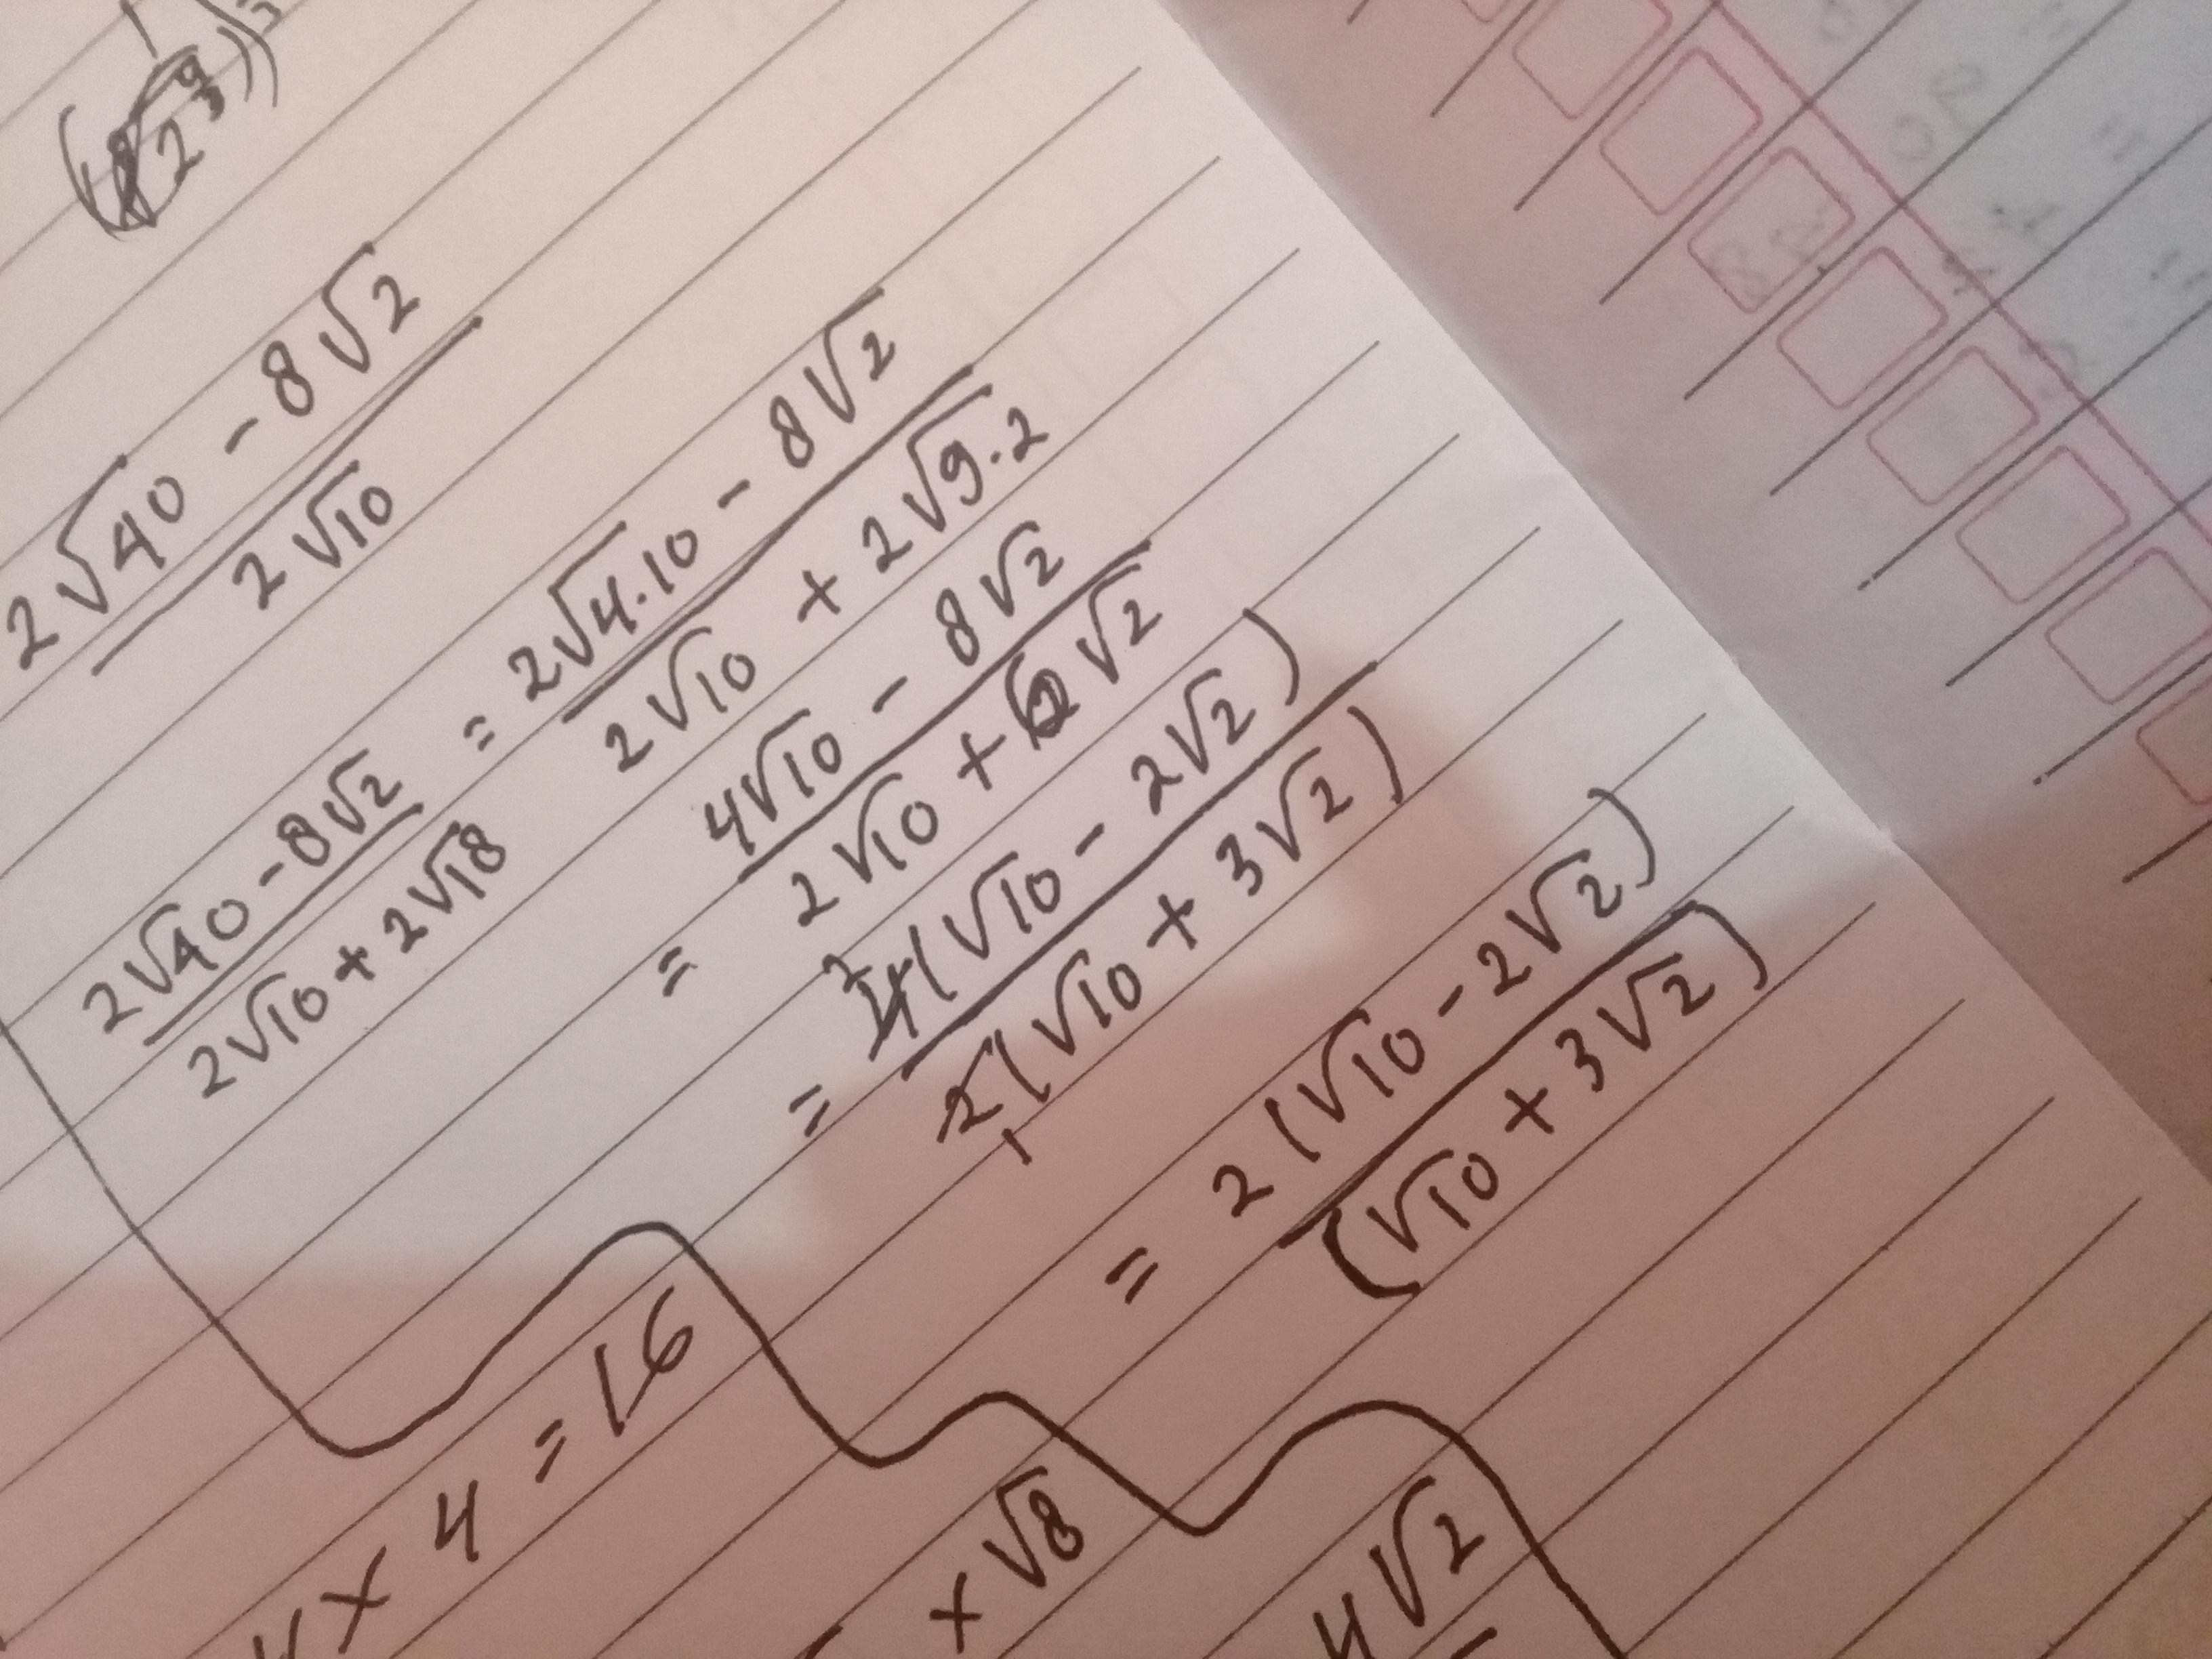 2√40 - 8√2
2√10
2√40 - 8√2 = 2√4·10 - 8√2
2√10 + 2√18 2√10 + 2√9·2
= 4√10 - 8√2
2√10 + 6√2
= 2 4(√10 - 2√2)
2(√10 + 3√2)
1
= 2(√10 - 2√2)
(√10 + 3√2)
× 4 = 16
× √8
4√2